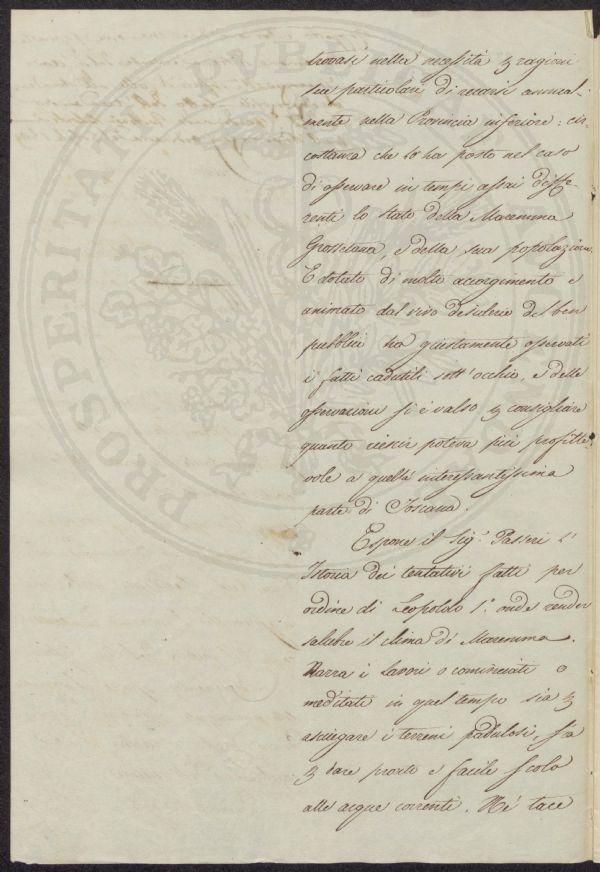 trovasi nella necessità p ragioni
sue particolari di recarsi annual-
mente nella Provincia inferiore: cir-
costanza che lo ha posto nel caso
di osservare in tempi assai diffe-
renti lo stato della Maremma
Grossetana, e della sua popolazione.
E dotato di molto accorgimento e
animato dal vivo desiderio del ben
pubblico ha giustamente osservati
i fatti cadutili sott'occhio, e delle
osservazioni si è valso p consigliare
quanto riescir poteva più profitte-
vole a quella interessantissima
parte di Toscana.
Espone il Sig.r Passeri l'
Istoria dei tentativi fatti per
ordine di Leopoldo 1.o onde render
salubre il clima di Maremma.
Narra i lavori o cominciati o
meditati in quel tempo sia p
asciugare i terreni padulosi, sia
p dare pronto e facile scolo
alle acque correnti. Nè tace
PROSPERITATI PUBLICAE